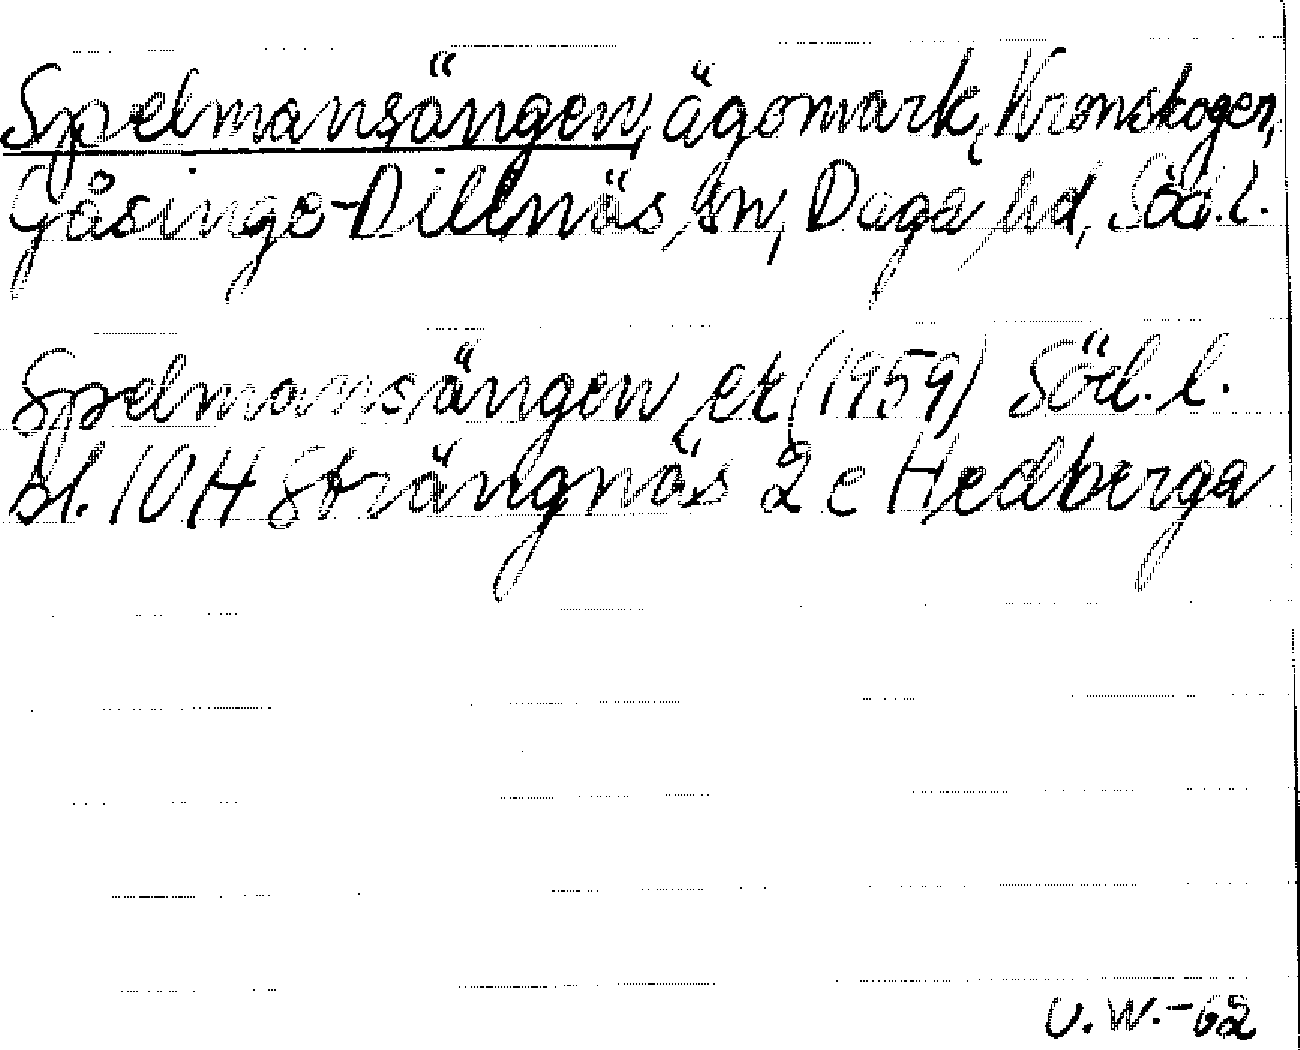 Spelmansängen, ägomark, Kronskogen,
Gåsinge-Dillnäs, sn, Daga hd, Söd.l.
Spelmansängen ek (1959) Söd.l.
bl. 10H Strängnäs 2 c Hedberga
U.W.-62